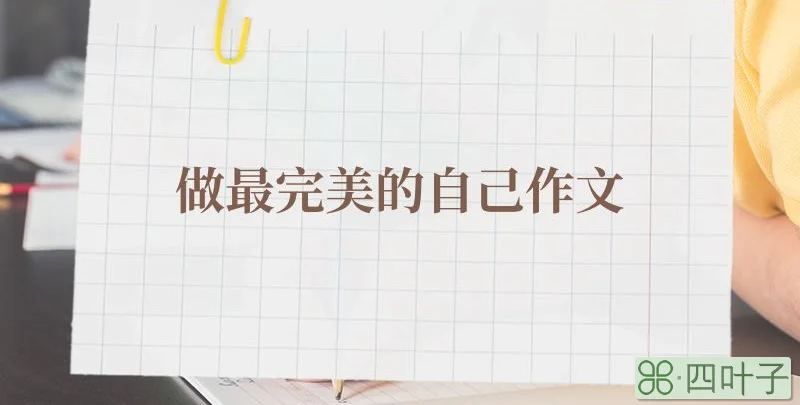 做最完美的自己作文
⌘·四叶子